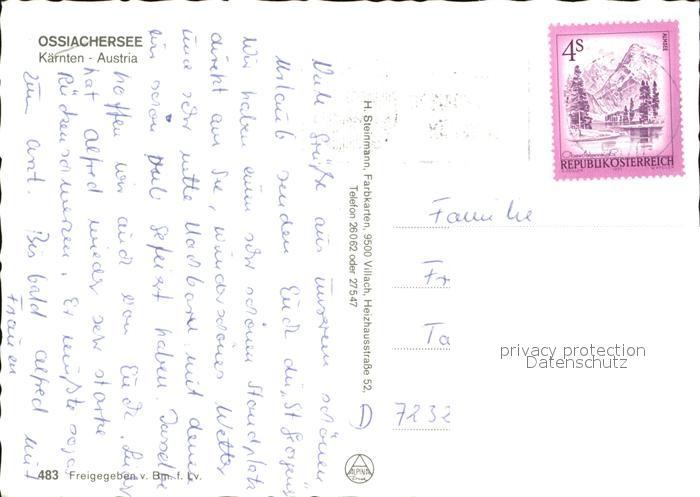 OSSIACHERSEE
Kärnten - Austria
Viele Grüße aus unserem schönen
Urlaub senden Euch die "St. Georgens"
Wir haben einen sehr schönen Standplatz
direkt am See, wunderschönes Wetter
und sehr nette Nachbarn mit denen
wir schon
gefeiert haben. Dasselbe
hoffen wir auch von Euch. Leider
hat Alfred wieder sehr starke
Rückenschmerzen. Er mußte sogar
zum Arzt. Bis bald Alfred mit
Frauen
483 Freigegeben v. Bm. f. Lv.
H. Steinmann, Farbkarten, 9500 Villach, Heizhausstraße 52,
Telefon 26062 oder 27547
ALPINA
4 S
ALMSEE
REPUBLIK ÖSTERREICH
Familie
Fr
Ta
D 7232
privacy protection
Datenschutz